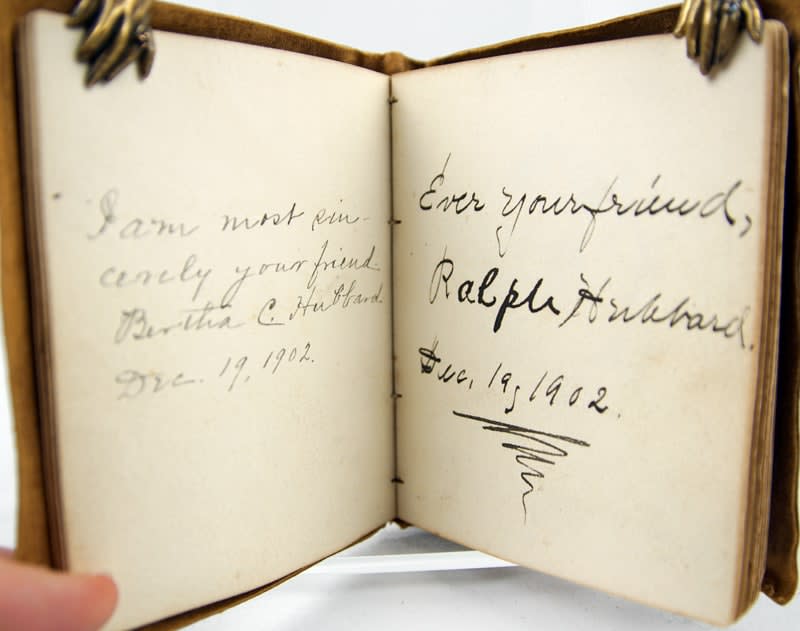 I am most sin-
cerely your friend
Bertha C. Hubbard.
Dec. 19, 1902.
Ever your friend,
Ralph Hubbard.
Dec, 19, 1902.